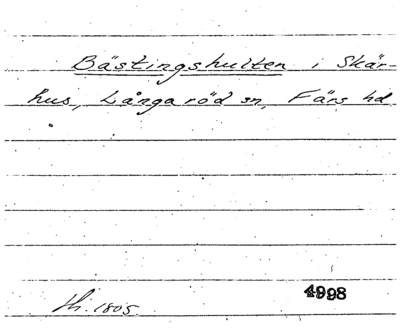 Bästingshulten i Skär-
hus, Långaröd sn, Färs hd
th. 1805.
4998